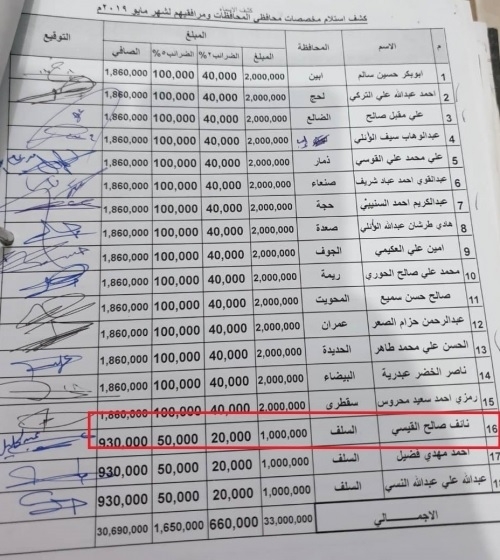 كشف استلام مخصصات محافظي المحافظات ومرافقيهم لشهر مايو ٢٠١٩م
م الاسم المحافظة المبلغ التوقيع
المبلغ الضرائب٢% الضرائب٥% الصافي
1 ابوبكر حسين سالم ابين 2,000,000 40,000 100,000 1,860,000
2 احمد عبدالله علي التركي لحج 2,000,000 40,000 100,000 1,860,000
3 علي مقبل صالح الضالع 2,000,000 40,000 100,000 1,860,000
4 عبدالوهاب سيف الؤلي 2,000,000 40,000 100,000 1,860,000
5 علي محمد علي القوسي ذمار 2,000,000 40,000 100,000 1,860,000
6 عبدالقوي احمد عباد شريف صنعاء 2,000,000 40,000 100,000 1,860,000
7 عبدالكريم احمد السنيني حجة 2,000,000 40,000 100,000 1,860,000
8 هادي طرشان عبدالله الؤلي صعدة 2,000,000 40,000 100,000 1,860,000
9 امين علي العكيمي الجوف 2,000,000 40,000 100,000 1,860,000
10 محمد علي صالح الحوري ريمة 2,000,000 40,000 100,000 1,860,000
11 صالح حسن سميع المحويت 2,000,000 40,000 100,000 1,860,000
12 عبدالرحمن حزام الصعر عمران 2,000,000 40,000 100,000 1,860,000
13 الحسن علي محمد طاهر الحديدة 2,000,000 40,000 100,000 1,860,000
14 ناصر الخضر عبدربة البيضاء 2,000,000 40,000 100,000 1,860,000
15 رمزي احمد سعيد محروس سقطرى 2,000,000 40,000 100,000 1,860,000
16 نائف صالح القيسي السلف 1,000,000 20,000 50,000 930,000
17 احمد مهدي فضيل السلف 1,000,000 20,000 50,000 930,000
عبدالله علي عبدالله النسي السلف 1,000,000 20,000 50,000 930,000
الاجمـــــالي 33,000,000 660,000 1,650,000 30,690,000